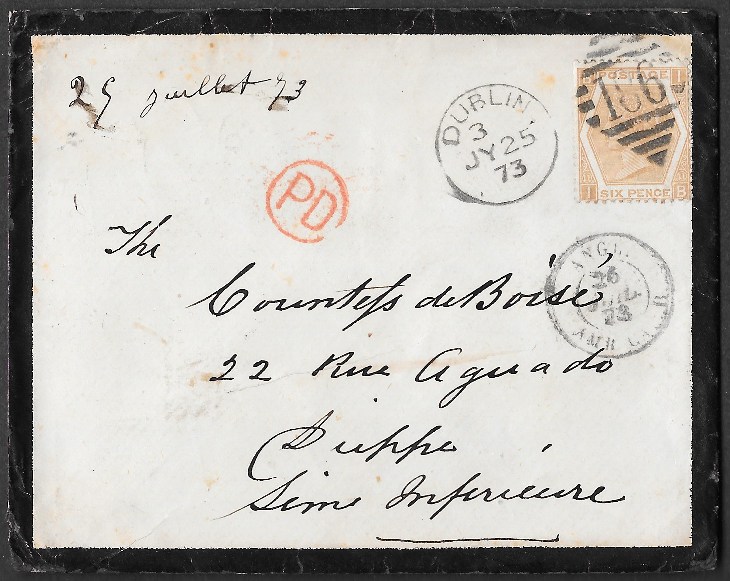 25 juillet 73
DUBLIN
3
JY 25
73
POSTAGE
186
I
SIX PENCE
I B
PD
ANGL.
26
JUIL
73
The
Countess de Boisé
22 Rue Aguado
Dieppe
Seine Inferieure